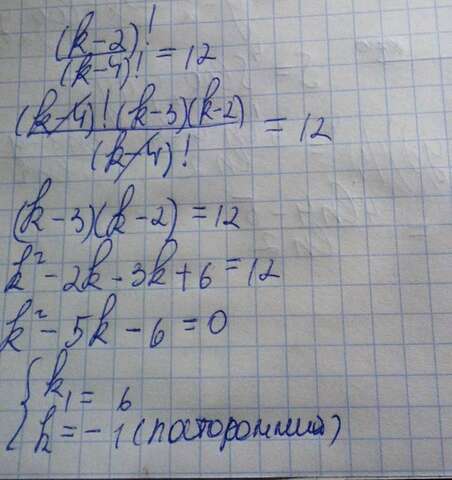 (k-2)!
(k-4)! = 12
(k-4)!(k-3)(k-2)
(k-4)! = 12
(k-3)(k-2)=12
k²-2k-3k+6=12
k²-5k-6=0
k₁= 6
k=-1(посторонний)